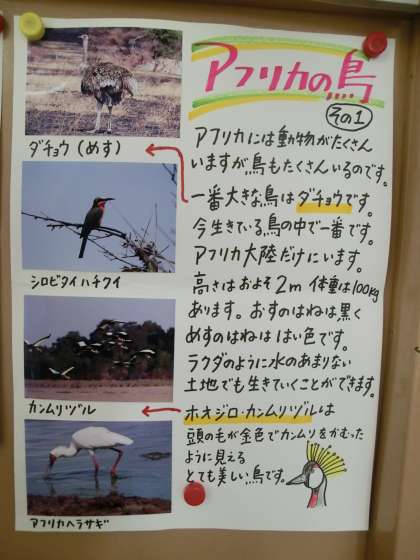 アフリカの鳥
その1
アフリカには動物がたくさん
いますが鳥もたくさんいるのです。
一番大きな鳥はダチョウです。
今生きている鳥の中で一番です。
アフリカ大陸だけにいます。
高さはおよそ2m 体重は100kg
あります。おすのはねは黒く
めすのはねは はい色です。
ラクダのように水のあまりない
土地でも生きていくことができます。
ホオジロ・カンムリヅルは
頭のもが金色でカンムリをかむった
ように見える
とても美しい鳥です。
ダチョウ(めす)
シロビタイハチクイ
カンムリヅル
アフリカヘラサギ